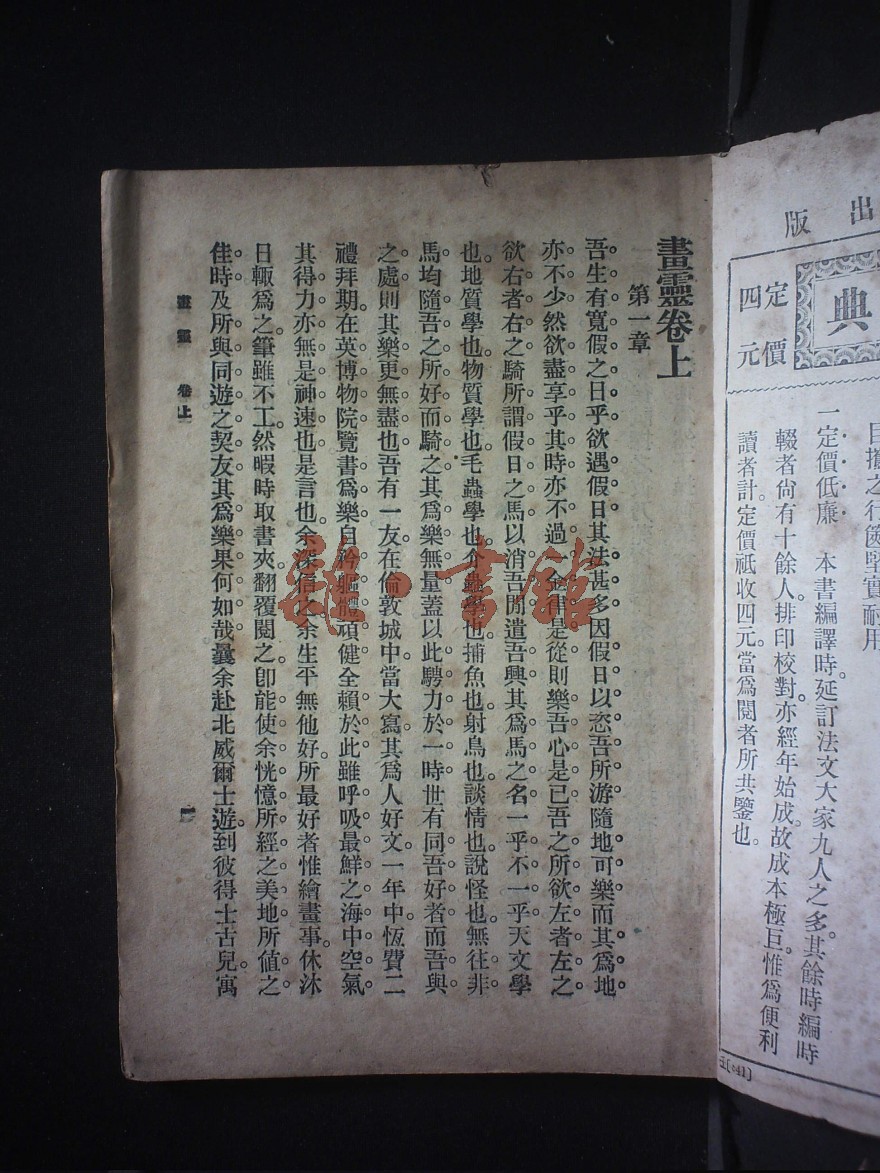 出版
典
定價
四元
目攜之行篋堅實耐用
一定價低廉 本書編譯時延訂法文大家九人之多。其餘時編時
輟者尙有十餘人。排印校對亦經年始成。故成本極巨。惟爲便利
讀者計。定價祇收四元。當爲閱者所共鑒也。
畫靈卷上
第一章
吾生有寬假之日乎。欲遇假日。其法甚多。因假日以恣吾所游。隨地可樂。而其爲地
亦不少。然欲盡享乎其時。亦不過一金律是從。則樂吾心是已。吾之所欲左者左之。
欲右者右之。騎所謂假日之馬。以消吾閒。遣吾興。其爲馬之名一乎不一乎。天文學
也。地質學也。物質學也。毛蟲學也。介蟲學也。捕魚也。射鳥也。談情也。說怪也。無往非
馬。均隨吾之所好而騎之。其爲樂無量。蓋以此騁力於一時。世有同吾好者。而吾與
之處。則其樂更無盡也。吾有一友。在倫敦城中當大寫。其爲人好文。一年中。恆費二
禮拜期。在英博物院覽書爲樂。自矜軀體頑健。全賴於此。雖呼吸最鮮之海中空氣。
其得力亦無是神速也。是言也。余深信之。余生平無他好。所最好者惟繪畫事。休沐
日輒爲之。筆雖不工。然暇時取書夾翻覆閱之。卽能使余恍憶所經之美地。所値之
佳時。及所與同遊之契友。其爲樂果何如哉。曩余赴北威爾士遊。到彼得士古兒。寓
畫靈 卷上 一
雜·書館